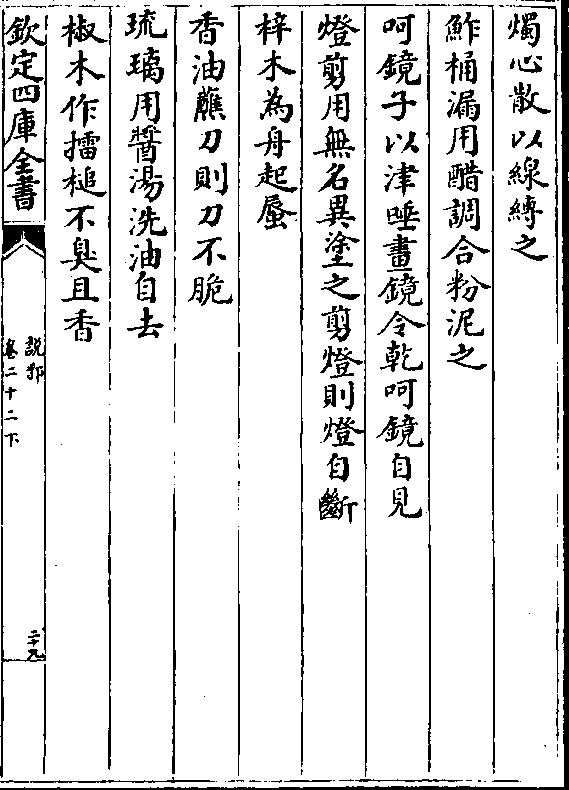 燭心散以線縳之
鮓桶漏用醋調合粉泥之
呵鏡子以津唾畫鏡令乾呵鏡自見
燈剪用無名異塗之剪燈則燈自斷
梓木為舟起蜃
香油蘸刀則刀不脆
琉璃用醬湯洗油自去
椒木作擂槌不臭且香
欽定四庫全書
說郛
卷二十二下
二十九